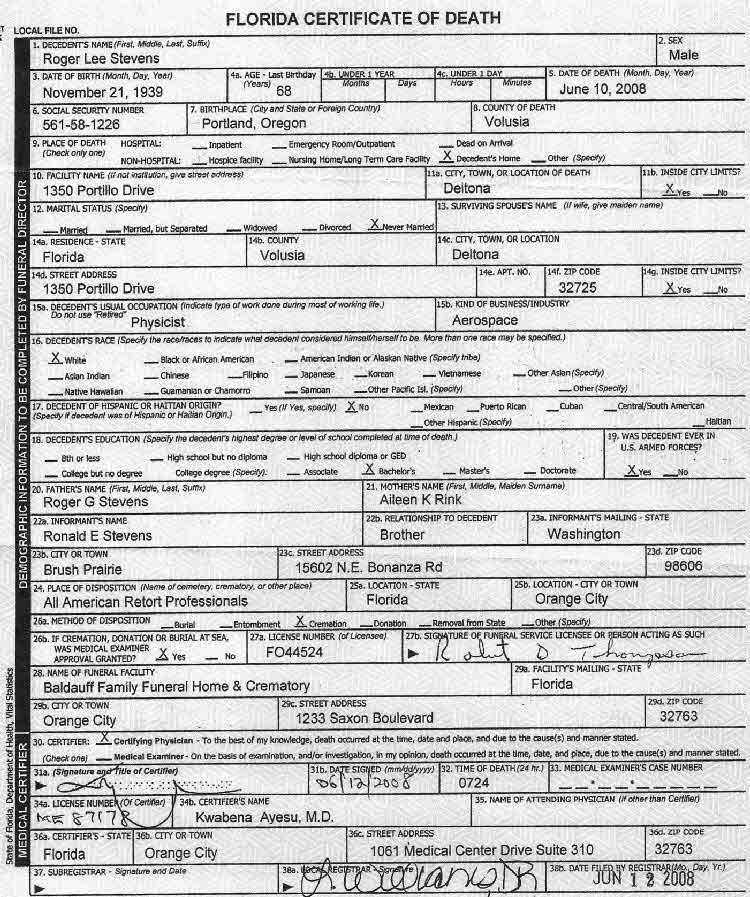 FLORIDA CERTIFICATE OF DEATH
LOCAL FILE NO.
1. DECEDENT'S NAME (First, Middle, Last, Suffix) 2. SEX
Roger Lee Stevens Male
3. DATE OF BIRTH (Month, Day, Year) 4a. AGE - Last Birthday (Years) 4b. UNDER 1 YEAR Months Days 4c. UNDER 1 DAY Hours Minutes 5. DATE OF DEATH (Month, Day, Year)
November 21, 1939 68 June 10, 2008
6. SOCIAL SECURITY NUMBER 7. BIRTHPLACE (City and State or Foreign Country) 8. COUNTY OF DEATH
561-58-1226 Portland, Oregon Volusia
9. PLACE OF DEATH HOSPITAL: Inpatient Emergency Room/Outpatient Dead on Arrival
(Check only one) NON-HOSPITAL: Hospice facility Nursing Home/Long Term Care Facility X Decedent's Home Other (Specify)
10. FACILITY NAME (If not institution, give street address) 11a. CITY, TOWN, OR LOCATION OF DEATH 11b. INSIDE CITY LIMITS?
1350 Portillo Drive Deltona X Yes No
12. MARITAL STATUS (Specify) 13. SURVIVING SPOUSE'S NAME (If wife, give maiden name)
Married Married, but Separated Widowed Divorced X Never Married
14a. RESIDENCE - STATE 14b. COUNTY 14c. CITY, TOWN, OR LOCATION
Florida Volusia Deltona
14d. STREET ADDRESS 14e. APT. NO. 14f. ZIP CODE 14g. INSIDE CITY LIMITS?
1350 Portillo Drive 32725 X Yes No
15a. DECEDENT'S USUAL OCCUPATION (Indicate type of work done during most of working life.) 15b. KIND OF BUSINESS/INDUSTRY
Do not use "Retired" Physicist Aerospace
16. DECEDENT'S RACE (Specify the race/races to indicate what decedent considered himself/herself to be. More than one race may be specified.)
X White Black or African American American Indian or Alaskan Native (Specify tribe)
Asian Indian Chinese Filipino Japanese Korean Vietnamese Other Asian (Specify)
Native Hawaiian Guamanian or Chamorro Samoan Other Pacific Isl. (Specify) Other (Specify)
17. DECEDENT OF HISPANIC OR HAITIAN ORIGIN? Yes (If Yes, specify) X No Mexican Puerto Rican Cuban Central/South American
(Specify if decedent was of Hispanic or Haitian Origin.) Other Hispanic (Specify) Haitian
18. DECEDENT'S EDUCATION (Specify the decedent's highest degree or level of school completed at time of death.) 19. WAS DECEDENT EVER IN U.S. ARMED FORCES?
8th or less High school but no diploma High school diploma or GED
College but no degree College degree (Specify): Associate X Bachelor's Master's Doctorate X Yes No
20. FATHER'S NAME (First, Middle, Last, Suffix) 21. MOTHER'S NAME (First, Middle, Maiden Surname)
Roger G Stevens Aileen K Rink
22a. INFORMANT'S NAME 22b. RELATIONSHIP TO DECEDENT 23a. INFORMANT'S MAILING - STATE
Ronald E Stevens Brother Washington
23b. CITY OR TOWN 23c. STREET ADDRESS 23d. ZIP CODE
Brush Prairie 15602 N.E. Bonanza Rd 98606
24. PLACE OF DISPOSITION (Name of cemetery, crematory, or other place) 25a. LOCATION - STATE 25b. LOCATION - CITY OR TOWN
All American Retort Professionals Florida Orange City
26a. METHOD OF DISPOSITION Burial Entombment X Cremation Donation Removal from State Other (Specify)
26b. IF CREMATION, DONATION OR BURIAL AT SEA, WAS MEDICAL EXAMINER APPROVAL GRANTED? X Yes No 27a. LICENSE NUMBER (of Licensee) 27b. SIGNATURE OF FUNERAL SERVICE LICENSEE OR PERSON ACTING AS SUCH
FO44524 Robert D Thompson
28. NAME OF FUNERAL FACILITY 29a. FACILITY'S MAILING - STATE
Baldauff Family Funeral Home & Crematory Florida
29b. CITY OR TOWN 29c. STREET ADDRESS 29d. ZIP CODE
Orange City 1233 Saxon Boulevard 32763
30. CERTIFIER: X Certifying Physician - To the best of my knowledge, death occurred at the time, date and place, and due to the cause(s) and manner stated.
(Check one) Medical Examiner - On the basis of examination, and/or investigation, in my opinion, death occurred at the time, date, and place, due to the cause(s) and manner stated.
31a. (Signature and Title of Certifier) 31b. DATE SIGNED (mm/dd/yyyy) 32. TIME OF DEATH (24 hr.) 33. MEDICAL EXAMINER'S CASE NUMBER
06/12/2008 0724
34a. LICENSE NUMBER (Of Certifier) 34b. CERTIFIER'S NAME 35. NAME OF ATTENDING PHYSICIAN (If other than Certifier)
ME 87178 Kwabena Ayesu, M.D.
36a. CERTIFIER'S - STATE 36b. CITY OR TOWN 36c. STREET ADDRESS 36d. ZIP CODE
Florida Orange City 1061 Medical Center Drive Suite 310 32763
37. SUBREGISTRAR - Signature and Date 38a. LOCAL REGISTRAR - Signature 38b. DATE FILED BY REGISTRAR (Mo., Day, Yr.)
JUN 12 2008
DEMOGRAPHIC INFORMATION TO BE COMPLETED BY FUNERAL DIRECTOR
MEDICAL CERTIFIER
State of Florida, Department of Health, Vital Statistics